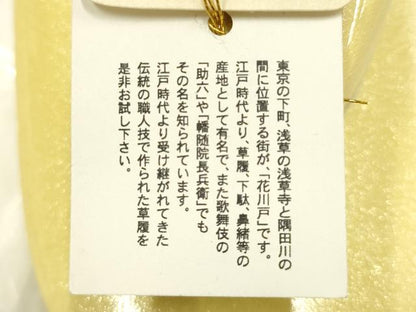 東京の下町、浅草の浅草寺と隅田川の
間に位置する街が、「花川戸」です。
江戸時代より、草履、下駄、鼻緒等の
産地として有名で、また歌舞伎の
「助六」や「幡随院長兵衛」でも
その名を知られています。
江戸時代より受け継がれてきた
伝統の職人技で作られた草履を
是非お試し下さい。